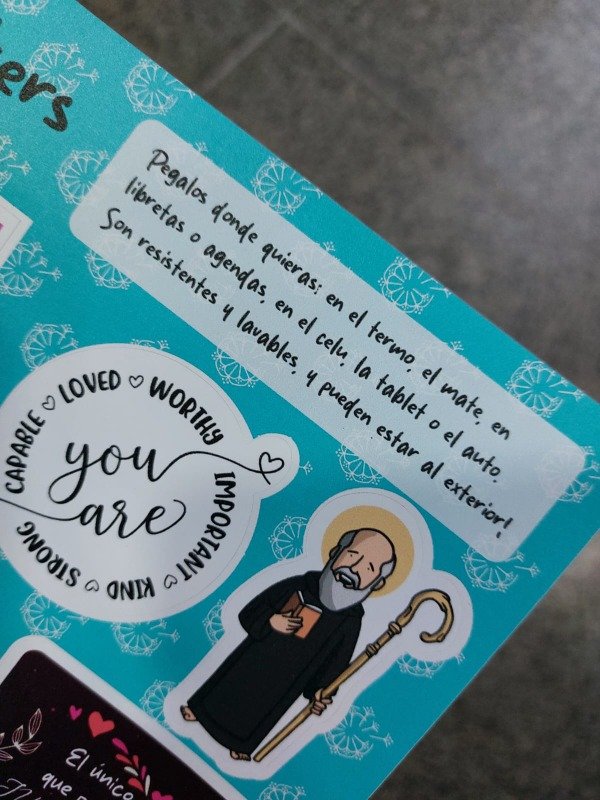 Pegalos donde quieras: en el termo, el mate, en
libretas o agendas, en el celu, la tablet o el auto.
Son resistentes y lavables, y pueden estar al exterior!
CAPABLE ♡ LOVED ♡ WORTHY
IMPORTANT ♡ KIND ♡ STRONG
you
are
El único
que